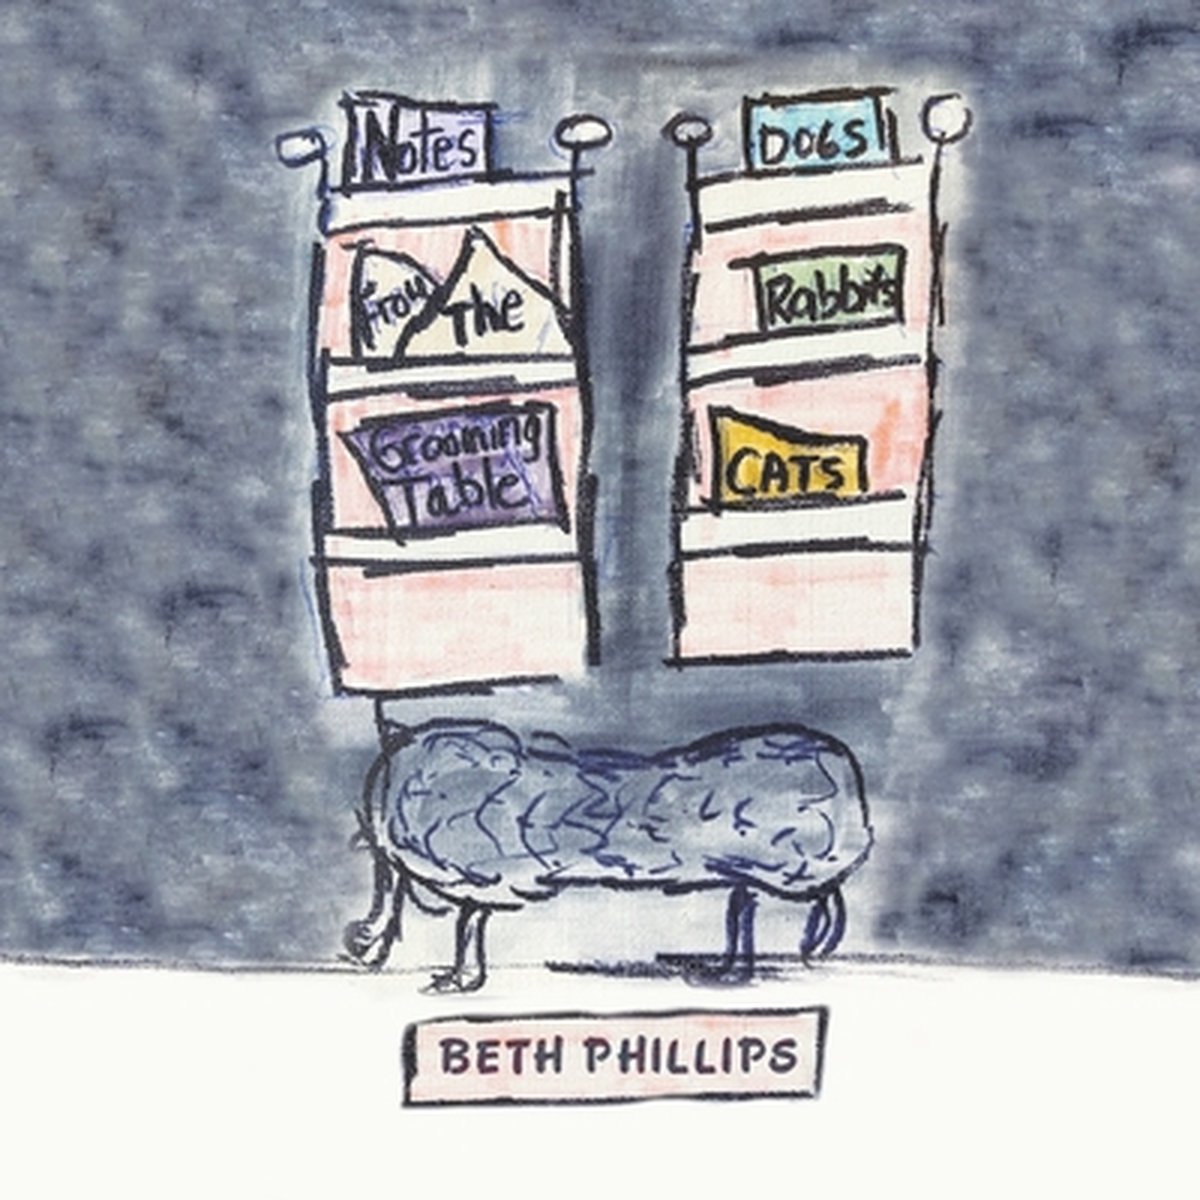 Notes
From The
Grooming
Table
DOGS
Rabbits
CATS
BETH PHILLIPS